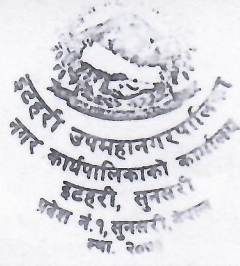 इटहरी उपमहानगरपालिका
नगर कार्यपालिकाको कार्यालय
इटहरी, सुनसरी
प्रदेश नं.१, सुनसरी, नेपाल
स्था.